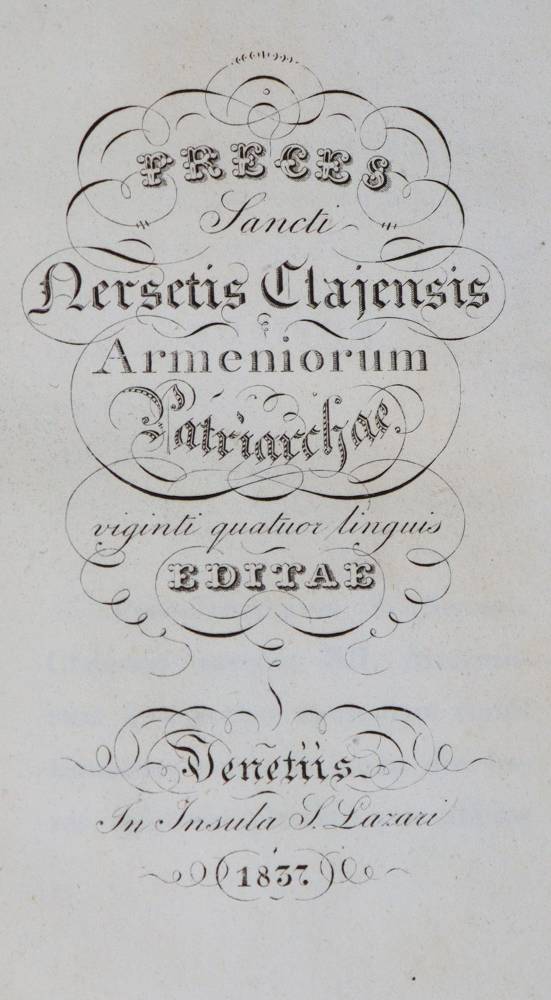 PRECES
Sancti
Nersetis Clajensis
Armeniorum
Patriarchae.
viginti quatuor linguis
EDITAE
Venetiis
In Insula S. Lazari
1837